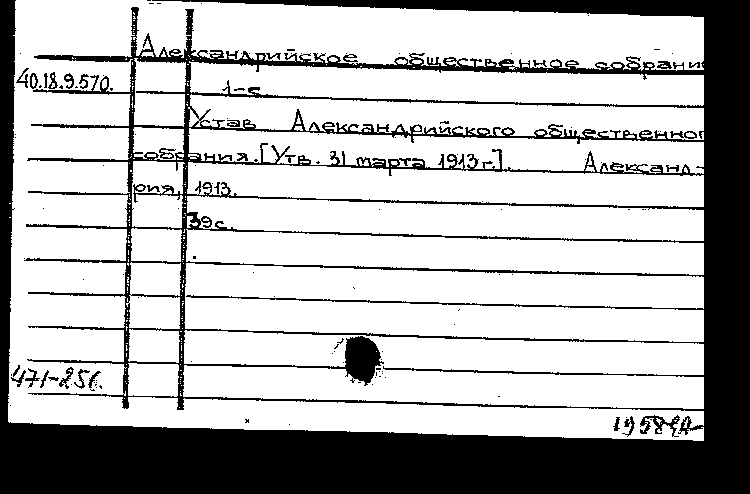 Александрийское общественное собрани
40.18.9.570.
1-е.
Устав Александрийского общественног
собрания. [Утв. 31 марта 1913 г.]. Александ-
рия, 1913.
39 с.
471-256.